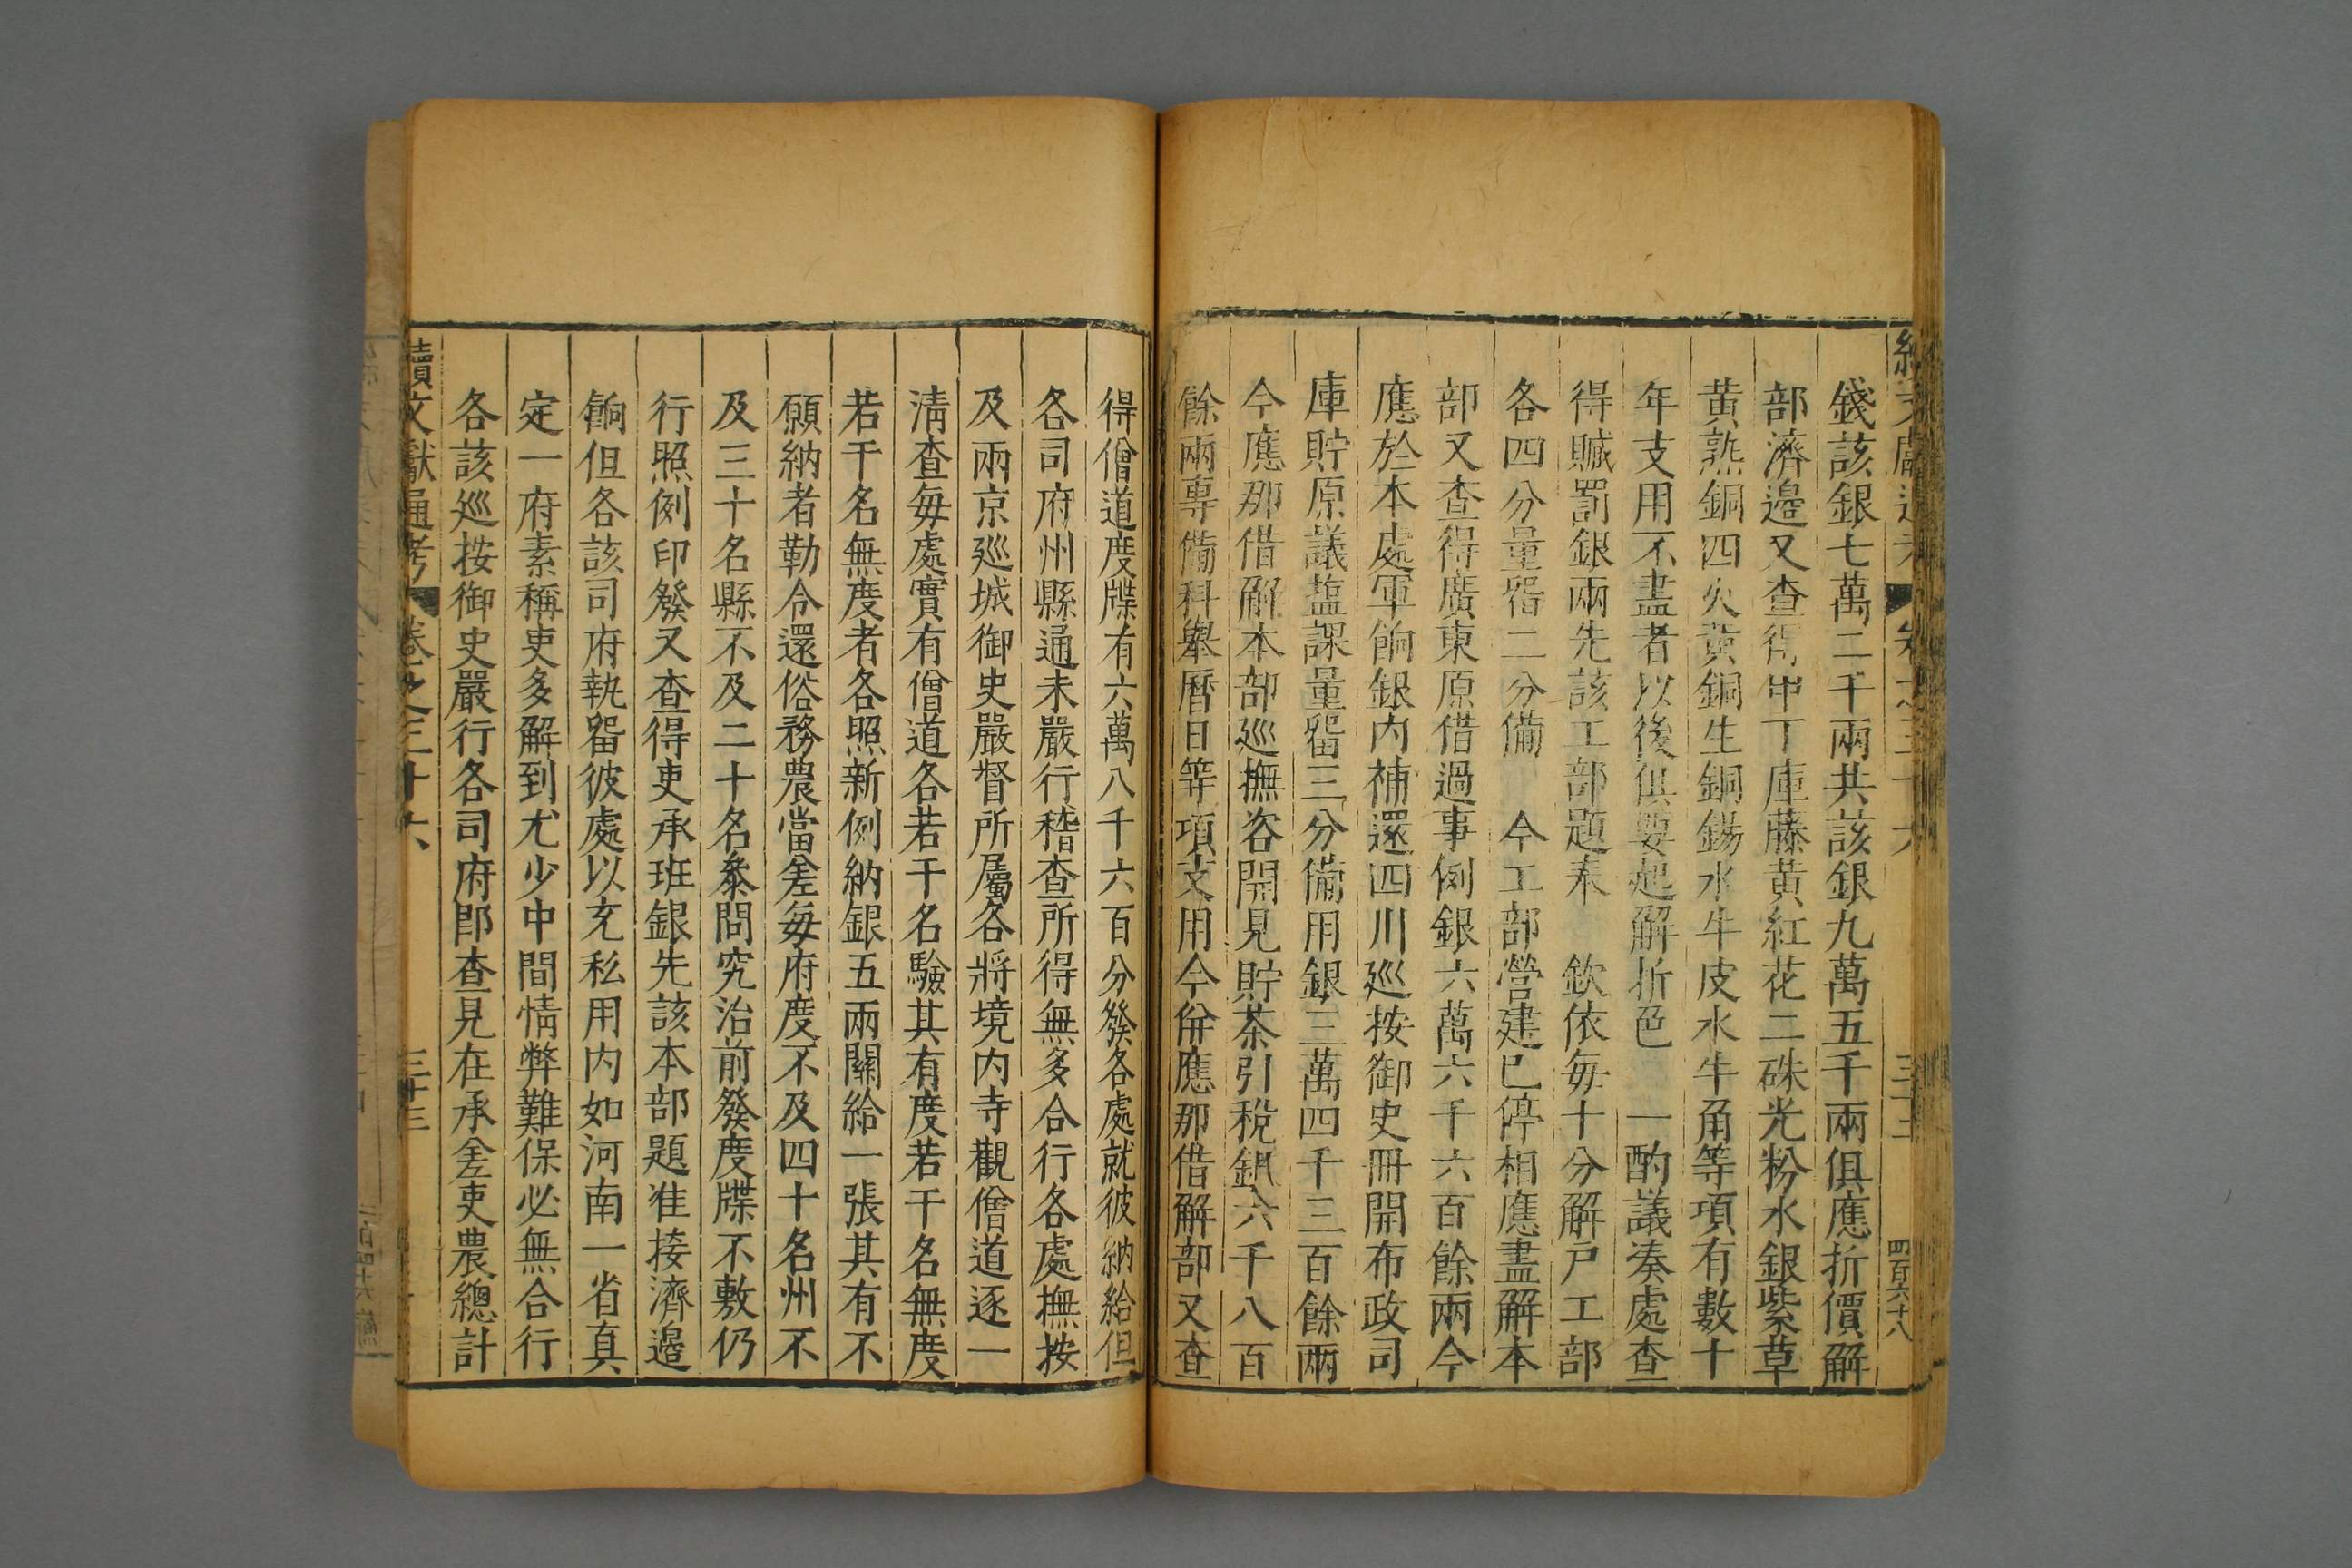 錢該銀七萬二千兩共該銀九萬五千兩俱應折價解
部濟邉又查得甲丁庫藤黄紅花二硃光粉水銀紫草
黄熟銅四火黄銅生銅錫水牛皮水牛角等項有數十
年支用不盡者以後俱要起解折色 一酌議湊處查
得贓罰銀兩先該工部題奉 欽依毎十分解戸工部
各四分量畱二分備 今工部營建已停相應盡解本
部又查得廣東原借過事例銀六萬六千六百餘兩今
應於本處軍餉銀内補還四川巡按御史冊開布政司
庫貯原議塩課量畱三分備用銀三萬四千三百餘兩
今應那借解本部巡撫咨開見貯茶引稅銀六千八百
餘兩專備科舉曆日等項支用今併應那借解部又查
得僧道度牒有六萬八千六百分發各處就彼納給但
各司府州縣通未嚴行稽查所得無多合行各處撫按
及兩京巡城御史嚴督所屬各將境内寺觀僧道逐一
淸查毎處實有僧道各若干名驗其有度若干名無度
若干名無度者各照新例納銀五兩關給一張其有不
願納者勒令還俗務農當差毎府度不及四十名州不
及三十名縣不及二十名叅問究治前發度牒不敷仍
行照例印發又查得吏承班銀先該本部題准接濟邉
餉但各該司府執畱彼處以充私用内如河南一省真
定一府素稱吏多解到尤少中間情弊難保必無合行
各該巡按御史嚴行各司府卽查見在承差吏農總計
續文獻通考 卷之三十六 三十三
四百六十八